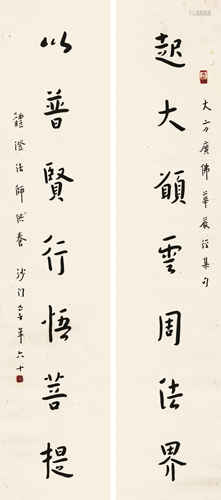 大方廣佛華嚴經集句
起大願雲周法界
以普賢行悟菩提
澄法師供養 沙門 年六十